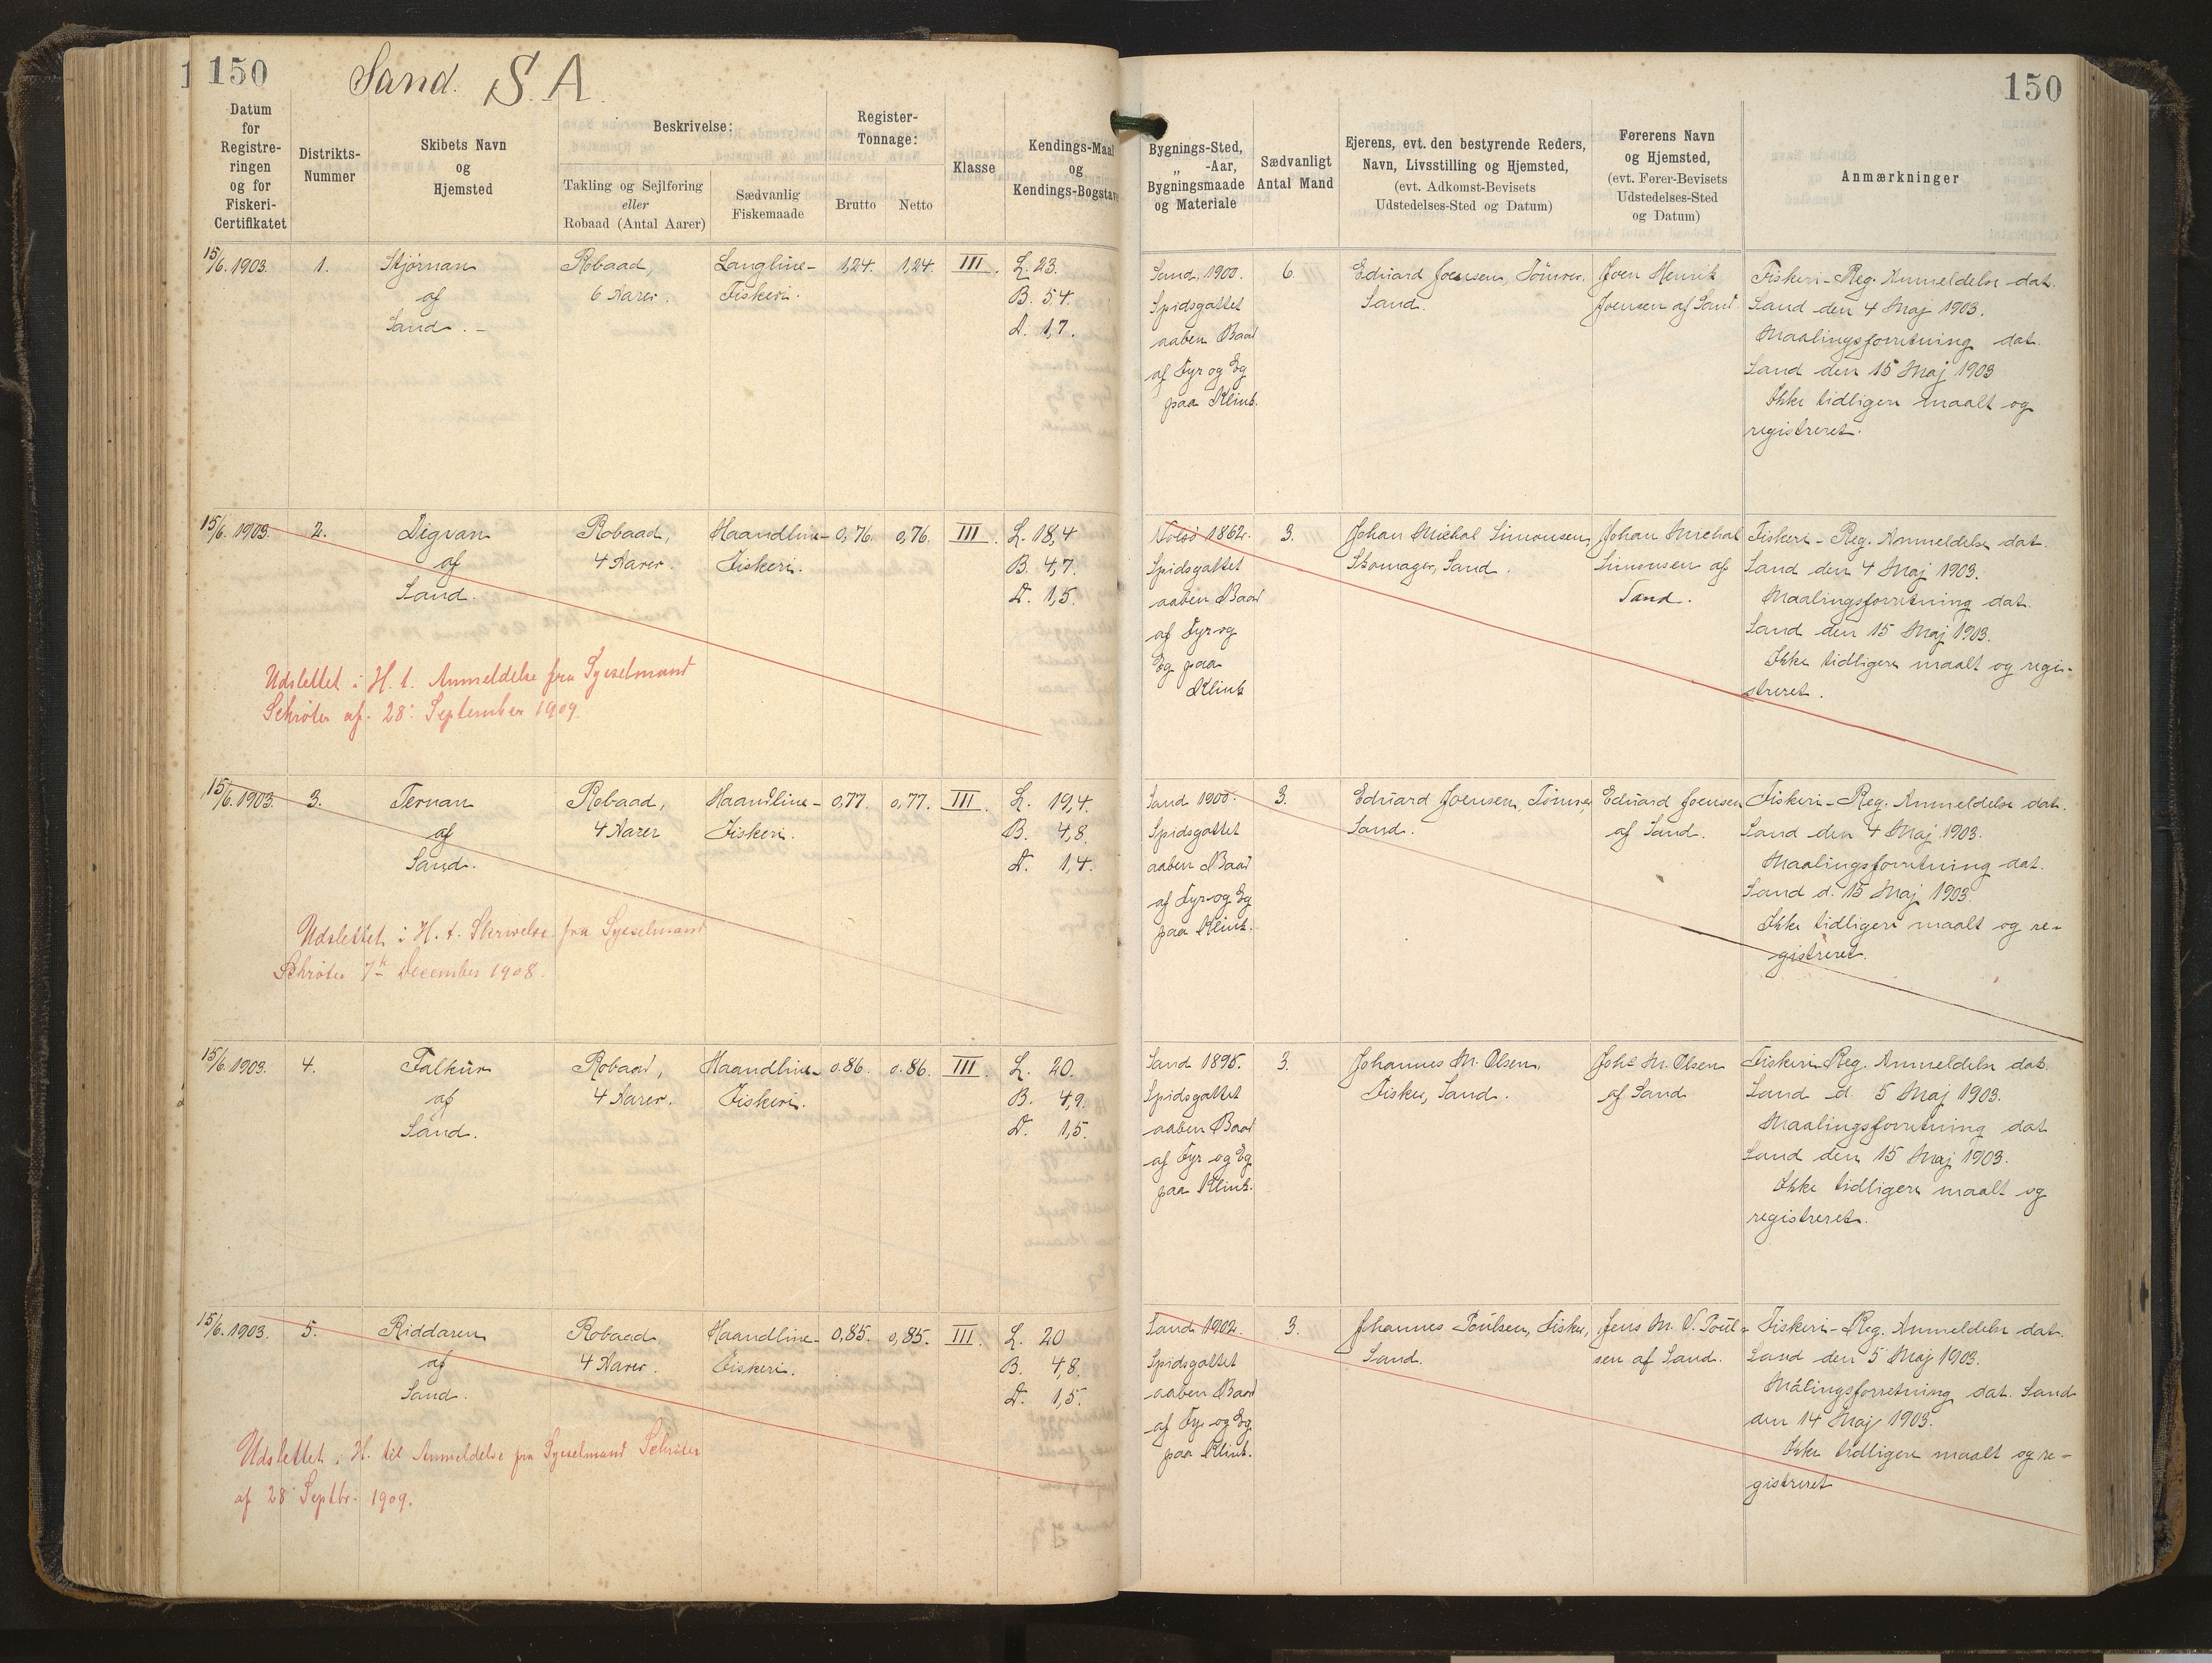 150
Sand. S.A.
Datum
for
Registre-
ringen
og for
Fiskeri-
Certifikatet
Distrikts-
Nummer
Skibets Navn
og
Hjemsted
Beskrivelse:
Takling og Sejlføring
eller
Robaad (Antal Aarer)
Sædvanlig
Fiskemaade
Register-
Tonnage:
Brutto
Netto
Klasse
Kendings-Maal
og
Kendings-Bogstave
15/6. 1903. 1. Stjørnan Robaad, Langline- 1,24. 1,24. III. L. 23.
af 6 Aarer. Fiskeri. B. 5,4.
Sand. D. 1,7.
15/6. 1903. 2. Digvan Robaad, Haandline- 0,76. 0,76. III. L. 18,4
af 4 Aarer. Fiskeri. B. 4,7.
Sand. D. 1,5.
Udslettet i H. t. Anmeldelse fra Sysselmand
Schrøter af. 28. September 1909.
15/6. 1903. 3. Ternan Robaad, Haandline- 0,77. 0,77. III. L. 19,4.
af 4 Aarer Fiskeri. B. 4,8.
Sand. D. 1,4.
Udslettet i H. t. Skrivelse fra Sysselmand
Schrøter 7de December 1908.
15/6. 1903. 4. Falkur Robaad, Haandline- 0.86. 0.86. III. L. 20.
af 4 Aarer. Fiskeri. B. 4,9.
Sand. D. 1,5.
15/6. 1903. 5. Riddaren Robaad Haandline- 0,85. 0,85. III. L. 20
af 4 Aarer. Fiskeri. B. 4,8.
Sand. D. 1,5.
Udslettet i H. til Anmeldelse fra Sysselmand Schrøter
af 28 Septbr. 1909.
150
Bygnings-Sted,
„ -Aar,
Bygningsmaade
og Materiale
Sædvanligt
Antal Mand
Ejerens, evt. den bestyrende Reders,
Navn, Livsstilling og Hjemsted,
(evt. Adkomst-Bevisets
Udstedelses-Sted og Datum)
Førerens Navn
og Hjemsted,
(evt. Fører-Bevisets
Udstedelses-Sted
og Datum)
Anmærkninger
Sand. 1900. 6. Eduard Joensen, Tömrer. Joen Henrik Fiskeri-Reg. Anmeldelse dat.
Spidsgattet Sand. Joensen af Sand Sand den 4 Maj 1903.
aaben Baad Maalingsforretning dat.
af Fyr og Eg Sand den 15 Maj 1903
paa Klink. Ikke tidligere maalt og
registreret.
1862. 3. Johan Michal Simonsen, Johan Michal Fiskeri-Reg. Anmeldelse dat.
Spidsgattet Skomager, Sand. Simonsen af Sand den 4 Maj 1903.
aaben Baad Sand. Maalingsforretning dat.
af Fyr og Sand den 15 Maj 1903.
Eg paa Ikke tidligere maalt og regi-
Klink streret.
Sand 1900. 3. Eduard Joensen, Tömrer, Eduard Joensen Fiskeri-Reg. Anmeldelse dat.
Spidsgattet Sand. af Sand. Sand den 4 Maj 1903.
aaben Baad Maalingsforretning dat.
af Fyr og Eg Sand d. 15 Maj 1903.
paa Klink. Ikke tidligere maalt og re-
gistreret.
Sand 1895. 3. Johannes M. Olsen, Johs M. Olsen Fiskeri-Reg. Anmeldelse dat.
Spidsgattet Fisker, Sand. af Sand Sand d. 5 Maj 1903.
aaben Baad Maalingsforretning dat
af Fyr og Eg Sand den 15 Maj 1903.
paa Klink. Ikke tidligere maalt og
registreret.
Sand 1902. 3. Johannes Poulsen, Fisker, Jens M. V. Poul- Fiskeri-Reg. Anmeldelse dat.
Spidsgattet Sand. sen af Sand. Sand den 5 Maj 1903.
aaben Baad Målingsforretning dat. Sand
af Fyr og Eg den 14 Maj 1903.
paa Klink. Ikke tidligere maalt og re-
gistreret